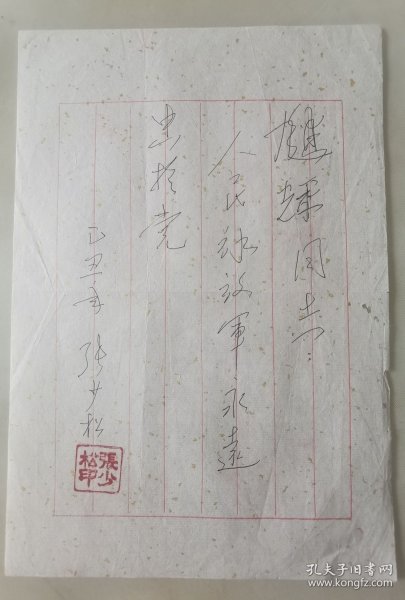 同志:
人民解放军永遠
忠于党
己丑年 张少松
張少松印
孔夫子旧书网
www.kongfz.com